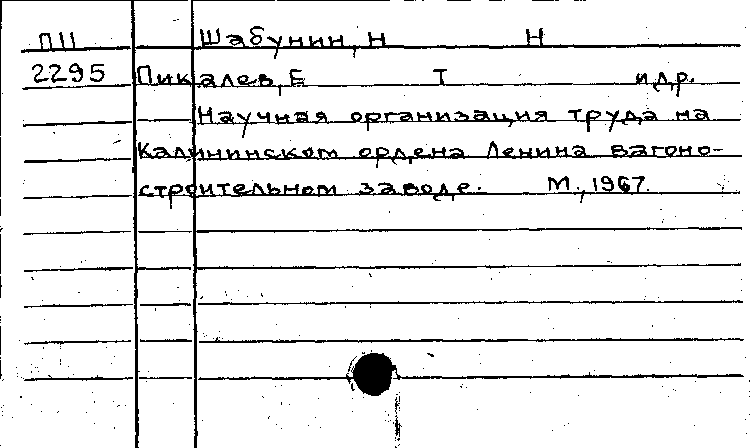 П11 Шабунин, Н Н
2295 Пикалев, Е Т и др.
Научная организация труда на
Калининском ордена Ленина вагоно-
строительном заводе. М., 1967.